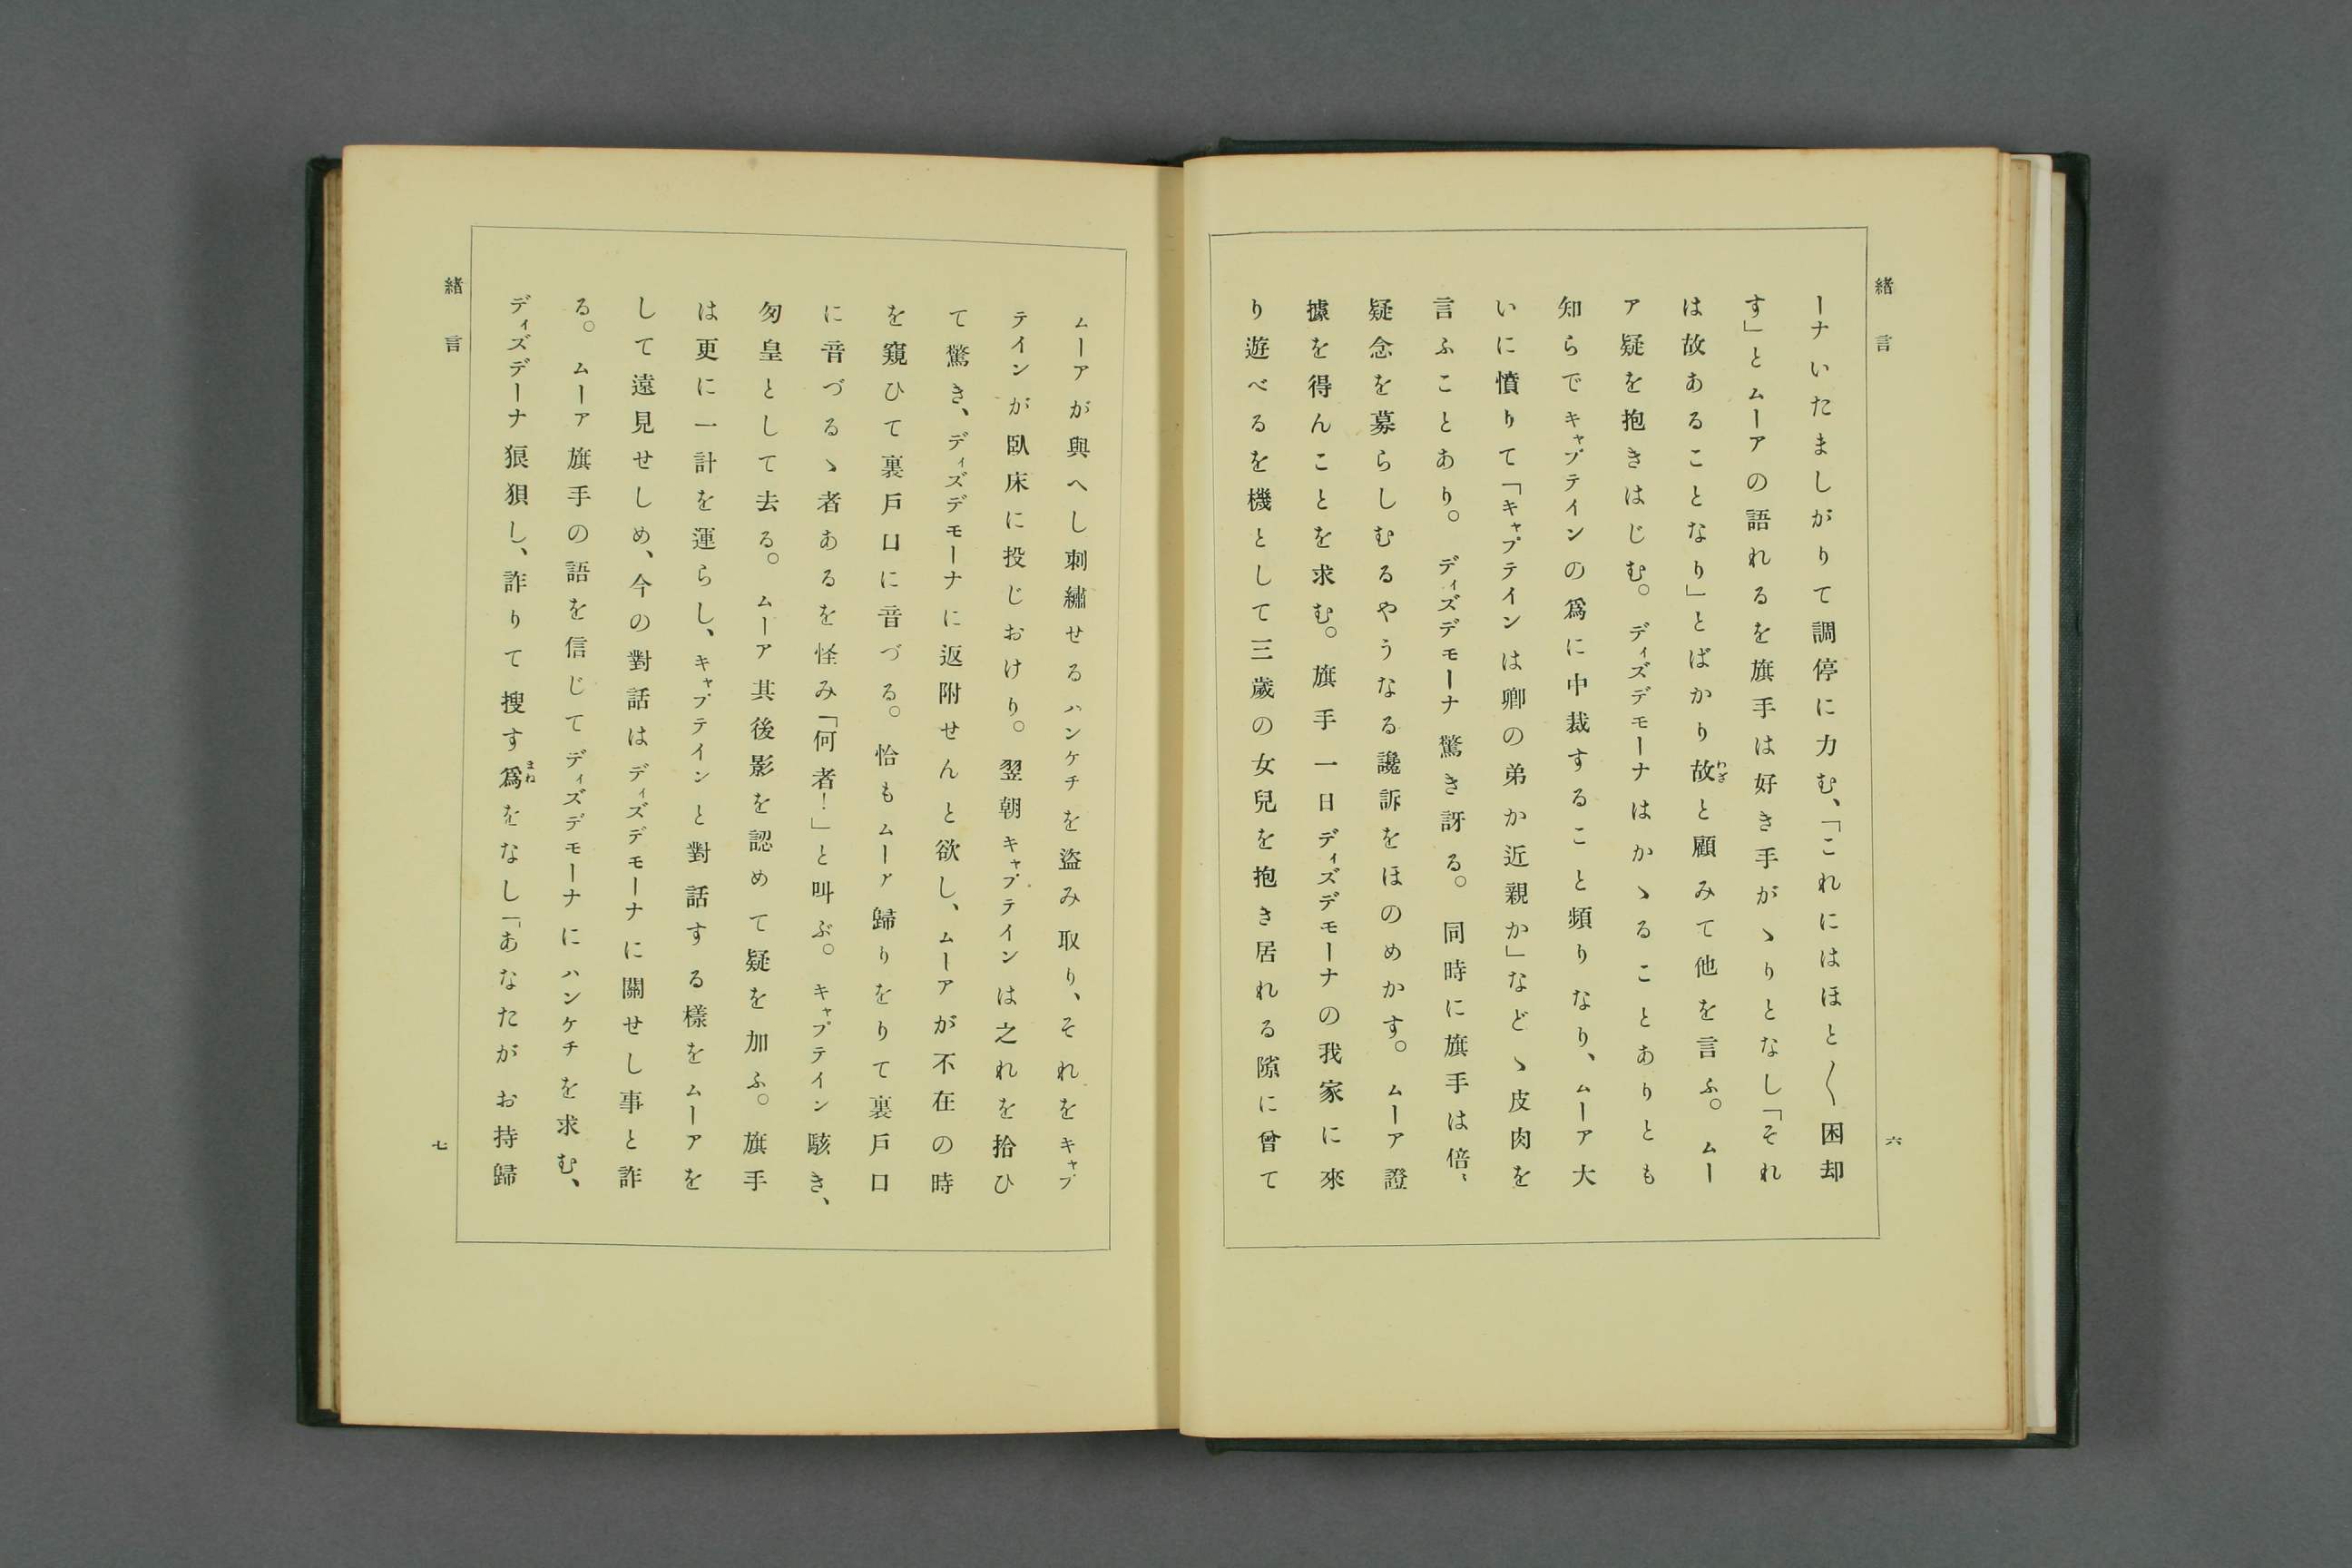 緒言
六
ーナいたましがりて調停に力む、「これにはほと〱困却
す」とムーアの語れるを旗手は好き手がゝりとなし「それ
は故あることなり」とばかり故と顧みて他を言ふ。ムー
わざ
ア疑を抱きはじむ。ディズデモーナはかゝることありとも
知らでキャプテインの爲に中裁すること頻りなり、ムーア大
いに憤りて「キャプテインは卿の弟か近親か」などゝ皮肉を
言ふことあり。ディズデモーナ驚き訝る。同時に旗手は倍〻
疑念を募らしむるやうなる讒訴をほのめかす。ムーア證
據を得んことを求む。旗手一日ディズデモーナの我家に來
り遊べるを機として三歲の女兒を抱き居れる隙に曾て
ムーアが與へし刺繡せるハンケチを盜み取り、それをキャプ
テインが臥床に投じおけり。翌朝キャプテインは之れを拾ひ
て驚き、ディズデモーナに返附せんと欲し、ムーアが不在の時
を窺ひて裏戶口に音づる。恰もムーア歸りをりて裏戶口
に音づるゝ者あるを怪み「何者!」と叫ぶ。キャプテイン駭き、
匆皇として去る。ムーア其後影を認めて疑を加ふ。旗手
は更に一計を運らし、キャプテインと對話する樣をムーアを
して遠見せしめ、今の對話はディズデモーナに關せし事と詐
る。ムーア旗手の語を信じてディズデモーナにハンケチを求む、
ディズデーナ狼狽し、詐りて搜す爲をなし「あなたがお持歸
まね
緒言
七